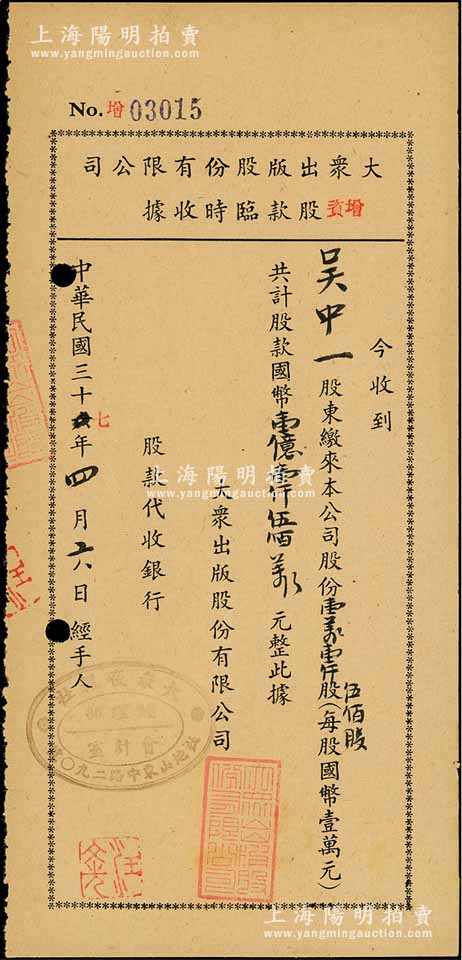 上海陽明拍賣
www.yangmingauction.com
No. 增 03015
大衆出版股份有限公司
增資股款臨時收據
今收到
吴中一股東繳來本公司股份壹萬壹仟股伍佰股(每股國幣壹萬元)
共計股款國幣壹億壹仟伍佰萬元整此據
大衆出版股份有限公司
股款代收銀行
中華民國三十七年四月六日 經手人
會計室
上海陽明拍賣
www.yangmingauction.com
上海陽明拍賣
www.yangmingauction.com